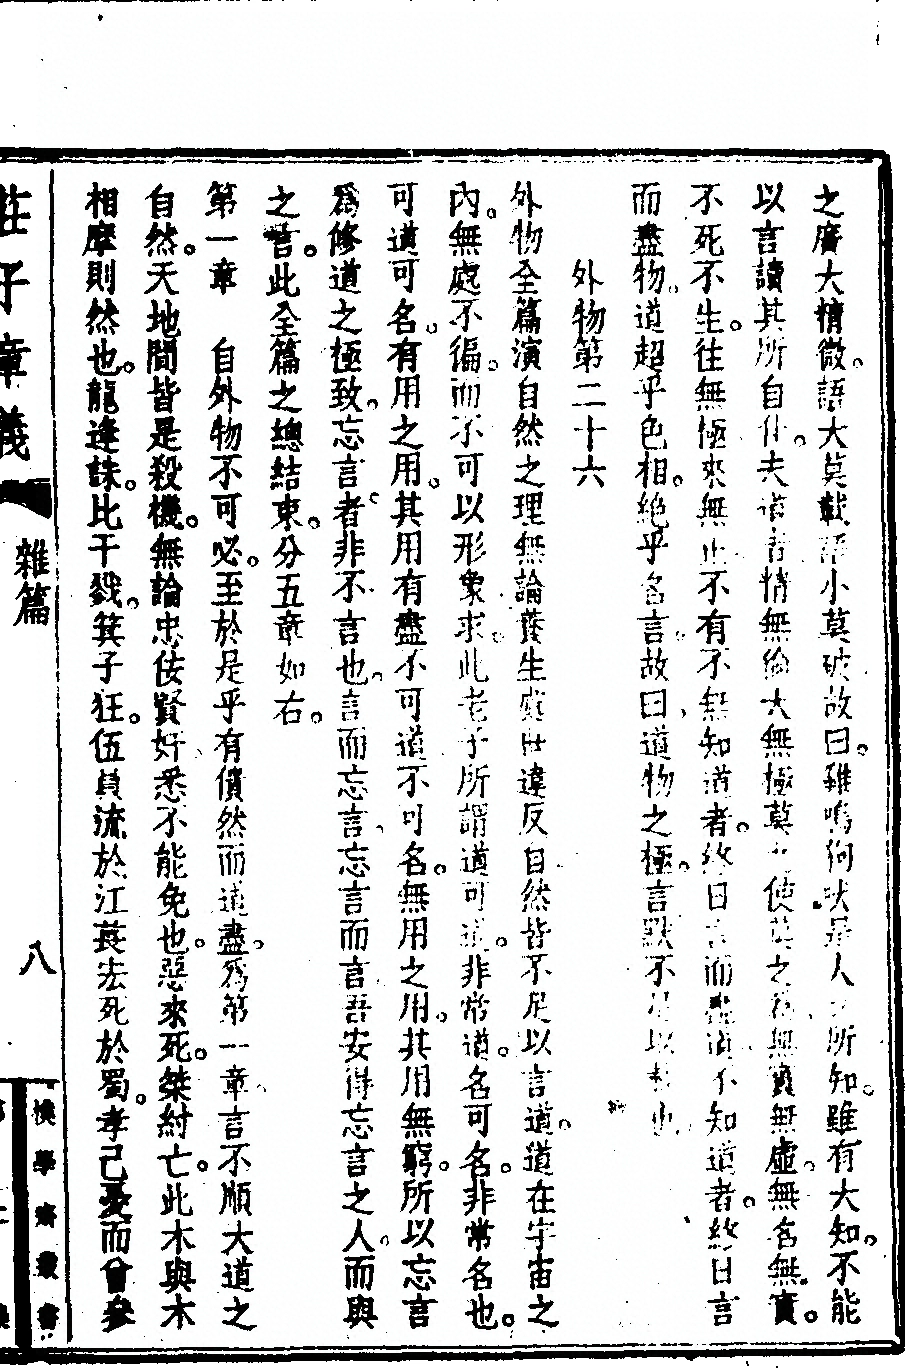 之廣大精微。語大莫載語小莫破故曰。雞鳴狗吠是人之所知。雖有大知。不能
以言讀其所自化。夫道者精無倫大無極莫之使莫之為無實無虛。無名無實。
不死不生。往無極來無止不有不無知道者。終日言而盡道不知道者。終日言
而盡物。道超乎色相。絶乎名言。故曰、道物之極。言默不足以載也
外物第二十六
外物全篇演自然之理無論養生處世違反自然皆不足以言道。道在宇宙之
內。無處不徧。而不可以形象求。此老子所謂道可道。非常道。名可名。非常名也。
可道可名。有用之用。其用有盡不可道不可名。無用之用。其用無窮。所以忘言
爲修道之極致。忘言者非不言也。言而忘言、忘言而言吾安得忘言之人。而與
之言。此全篇之總結束。分五章如右。
第一章　自外物不可必。至於是乎有僓然而道盡。爲第一章、言不順大道之
自然。天地間皆是殺機。無論忠佞賢奸悉不能免也。惡來死。桀紂亡。此木與木
相摩則然也。龍逢誅。比干戮。箕子狂。伍員流於江萇宏死於蜀。孝己憂而曾參
莊子章義
雜篇
八
樸學齋叢書